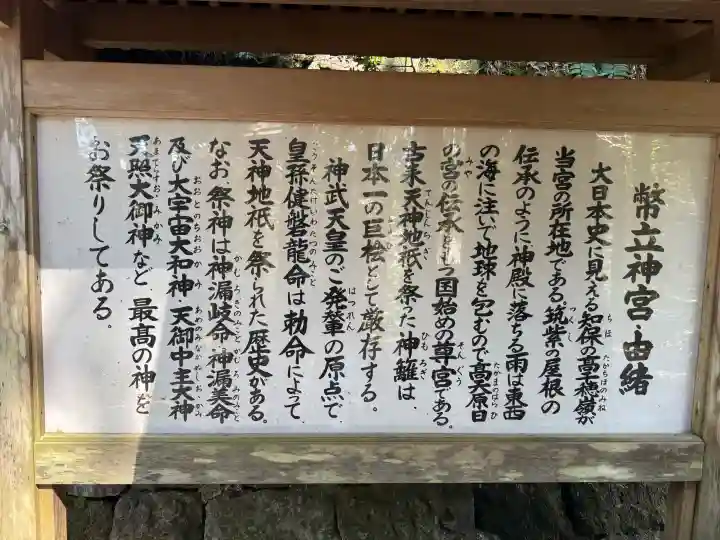 幣立神宮・由緒
大日本史に見える知保の高千穂嶺が
当宮の所在地である。筑紫の屋根の
伝承のように、神殿に落ちる雨は東西
の海に注いで地球を包むので、高天原日
の宮の伝承をもつ国始めの尊宮である。
古来天神地祇を祭った神籬は、
日本一の巨桧として厳存する。
神武天皇のご発輦の原点で、
皇孫健磐龍命は勅命によって、
天神地祇を祭られた歴史がある。
なお、祭神は神漏岐命・神漏美命
及び大宇宙大和神・天御中主大神
天照大御神など、最高の神を
お祭りしてある。